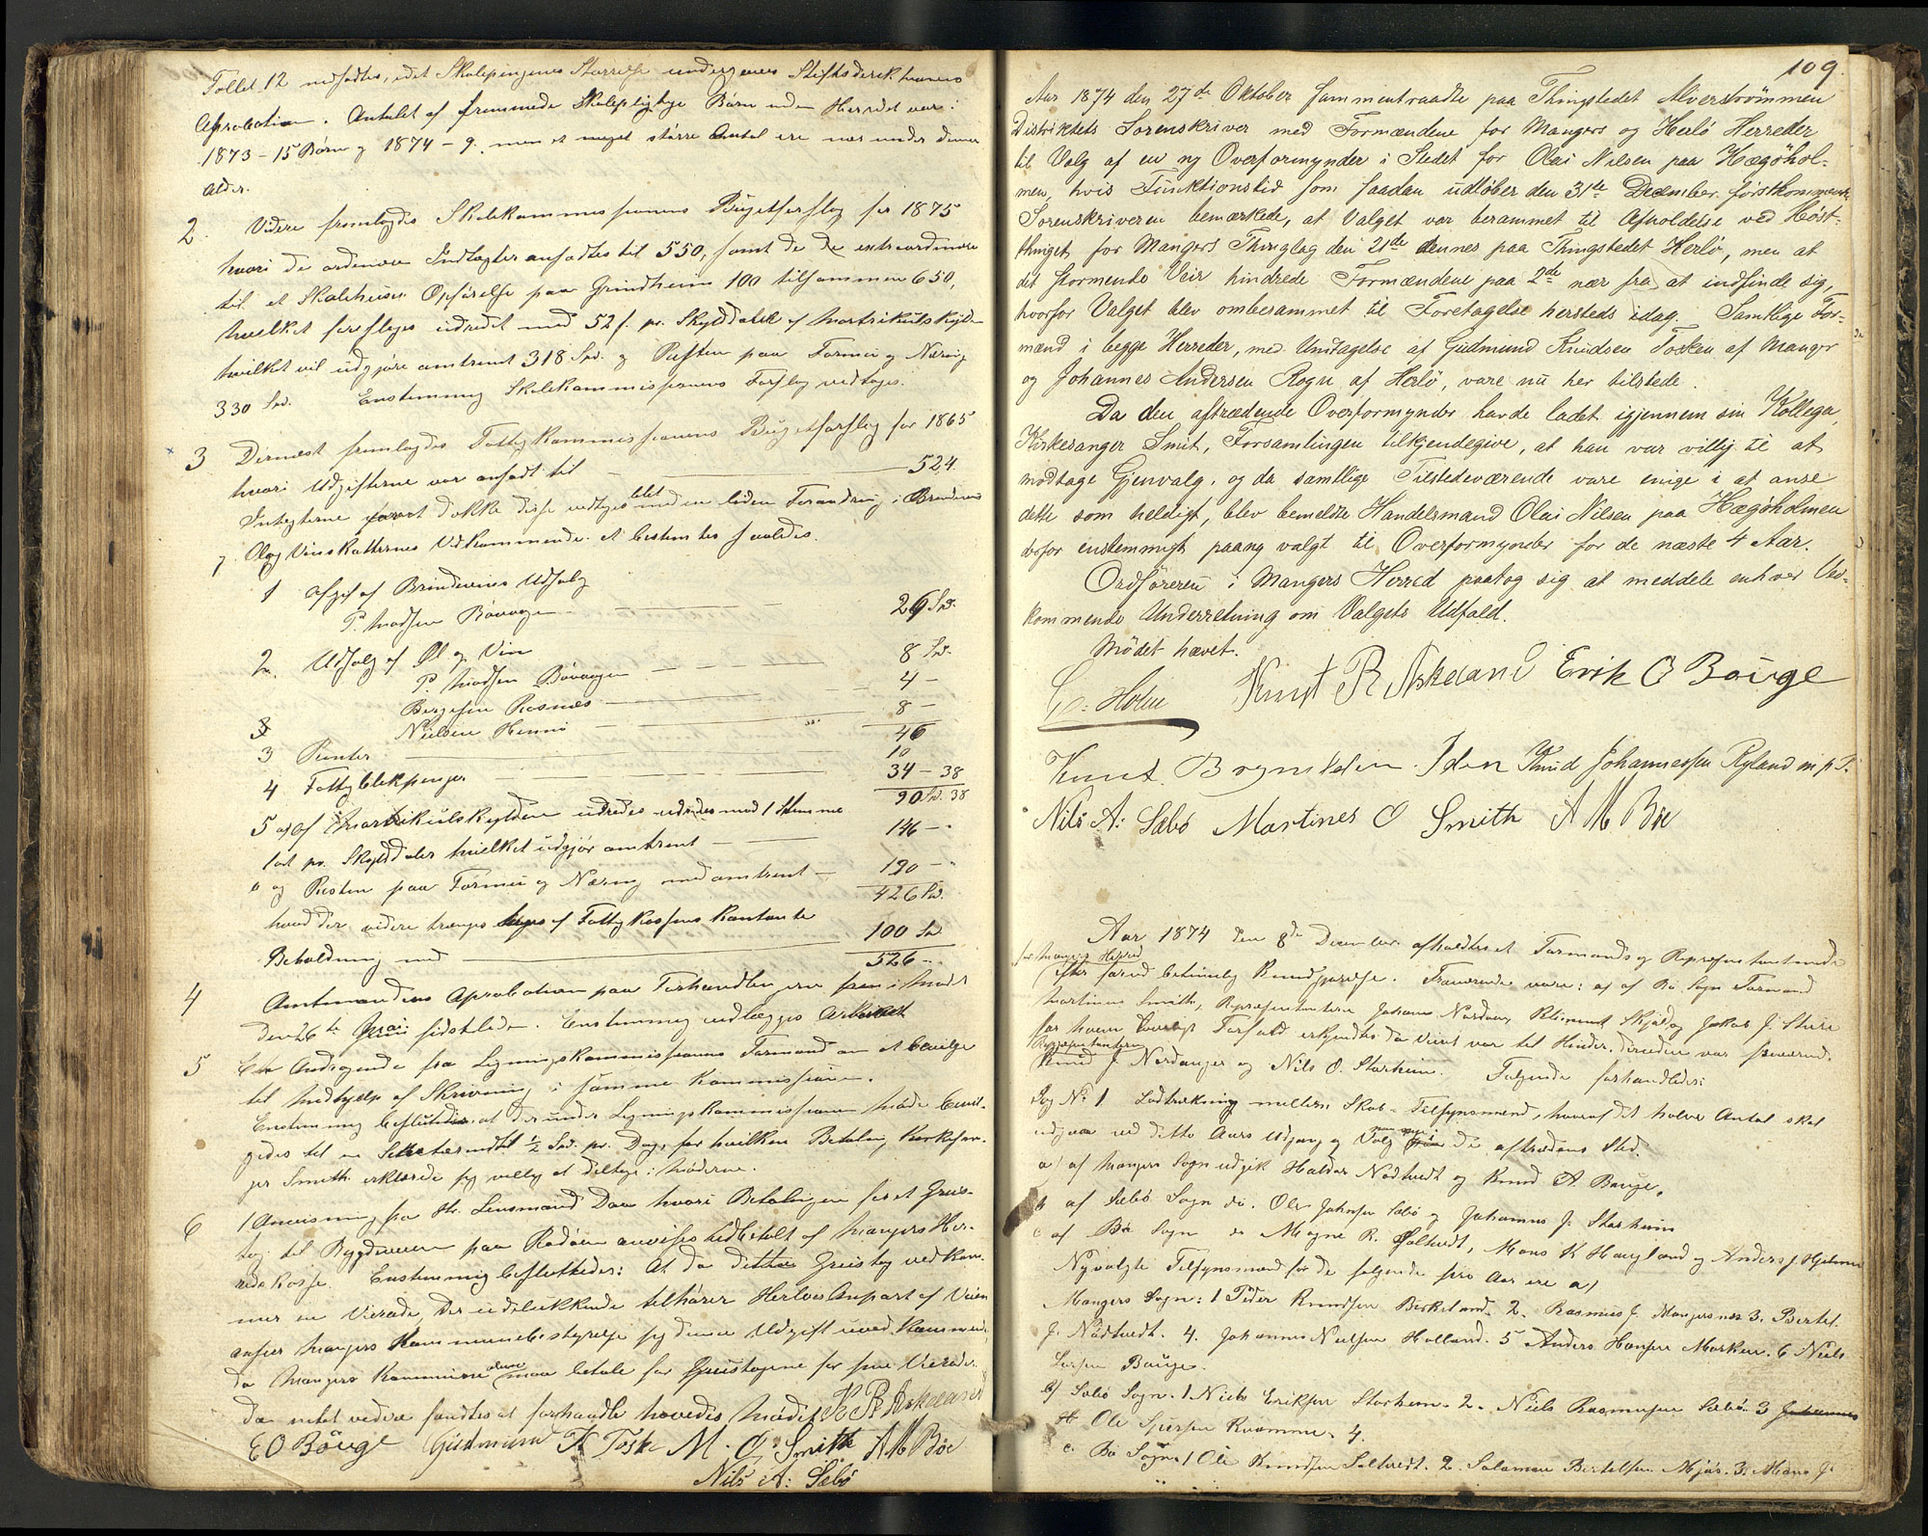 Tallet 12 nedsættes, idet Skolepengenes Størrelse undergives Stiftsdirektionens
Aprobation. Antallet af fremmede Skolepligtige Børn uden Herredet var:
1873 – 15 Børn og 1874 – 9. men et meget større Antal ere nær under denne
Alder.
2. Videre fremlagdes Skolekommissionens Budgetforslag for 1875
hvori de ordinære Indtægter ansattes til 550, samt de extraordinære
til et Skolehuses Opførelse paa Grindheim 100 tilsammen 650,
hvilket foresloges udredet med 52 s. pr. Skylddaler af Matrikulskylden
hvilket vil udgjøre omtrent 318 Spd. og Resten paa Formue og Næring
330 Spd. Enstemmig Skolekommissionens Forslag vedtoges.
3 Dernæst fremlagdes Fattigkommissionens Budgetforslag for 1865
hvori Udgifterne var ansat til — 524.
Indtægterne disse vedtoges med en liden Forandring i Brændevins
Olog Vinskatternes Vedkommende. et bestemtes saaledes.
1 Afgift af Brændevins Udsalg
P. Madsen Bøvaagen — 26 Spd.
2. Udsalg af Øl og Vin
P. Madsen Bøvaagen — 8 Spd.
Bergesen Rosnæs — 4 –
Nielsen Hennø — 8 –
46
3 Renter — 10
4 Fattiglekpenger — 34 – 38
90 Spd. 38
5 af Matrikulskylden udredes med 1
Ort pr. Skylddaler hvilket udgjør omtrent — 146 –
og Resten paa Formue og Næring med omtrent — 190 –
426 Spd.
hvad der videre trænges tages af Fattigkassens Kontante
Beholdning med — 100 Spd
526 –
4 Amtmandens Aprobation paa Forhandlingerne fra i Mødet
den 26de Mai sidstleden. Enstemmig vedlægges Arkivet
5 En Andragende fra Ligningskommissionens Formand om at bevilge
til Medhjelp af Skrivning i samme Kommission.
Enstemmig besluttedes at der under Ligningskommissionens Møde bevil-
gedes til en Sekretær indtil ½ Spd. pr. Dag, for hvilken Betaling Kirkesan-
ger Smith erklærede sig villig at deltage i Møderne.
6 1 Anvisning fra Hr. Lensmand Daae hvori Betalingen for et Greis-
tog til Bygdeveien paa Radøen anvises udbetalt af Mangers Her-
redskasse. Enstemmig besluttedes: At da dette Greistog vedkom-
mer en Veirode, der udelukkende tilhører Herløe Anpart af Veien
anser Mangers Kommunebestyrelse sig denne Udgift uvedkommende,
da Mangers Kommune alene maa betale for Greistogene for sine Veiroder.
Da intet videre fandtes at forhandle hævedes Mødet K R Askeland
E O Bøuge Gudmund K Toske M. O. Smith A M Bøe
Nils A: Sæbö
109.
Aar 1874 den 27de Oktober sammentraadte paa Thingstedet Alverstrømmen
Distriktets Sorenskriver med Formændene for Mangers og Herlö Herreder
til Valg af en ny Overformynder i Stedet for Olai Nilsen paa Hægöhol-
men, hvis Funktionstid som saadan udløber den 31te December førstkommende.
Sorenskriveren bemærkede, at Valget var berammet til Afholdelse ved Høst-
thinget for Mangers Thinglag den 21de dennes paa Thingstedet Herlö, men at
det stormende Veir hindrede Formændene paa 2de nær fra at indfinde sig,
hvorfor Valget blev omberammet til Foretagelse hersteds idag. Samtlige For-
mænd i begge Herreder, med Undtagelse af Gudmund Knudsen Tosken af Manger
og Johannes Andersen Rogn af Herlö, vare nu her tilstede.
Da den aftrædende Overformynder havde ladet igjennem sin Kollega,
Kirkesanger Smit, Forsamlingen tilkjendegive, at han var villig til at
modtage Gjenvalg, og da samtlige Tilstedeværende vare enige i at anse
dette som heldigt, blev bemeldte Handelsmand Olai Nilsen paa Hægöholmen
derfor enstemmigt paany valgt til Overformynder for de næste 4 Aar.
Ordföreren i Mangers Herred paatog sig at meddele enhver Ved-
kommende Underretning om Valgets Udfald.
Mödet hævet.
Holm Knut R Askeland Erik O Bøuge
Knut Brynildsen Iden Knud Johannessen Ryland m. p. P.
Nils A: Sæbö Martines O Smith A M Böe
Aar 1874 den 8de December afholdtes et Formands og Repræsentantmøde
for Mangers Herred
efter forud betimelig Kundgjørelse. Fraværende vare: af Bø Sogn Formand
Martinus Smith, Repræsentanterne Johannes Nordanger, Skjelanger Jakob J. Sture
for hvem lovligt Forfald erkjendtes da Veiret var til Hinder, desuden var fraværende
Repræsentanterne
Knud J. Nordanger og Nils O. Storheim. Følgende forhandledes:
Sag No 1 Lodtrækning mellem Skov-Tilsynsmænd, hvoraf det halve Antal skal
udgaa ved dette Aars Udgang og Valg paa nye i de aftrædenes Sted.
a) af Mangers Sogn udgik Haldor Nødtvedt og Knud A. Bøuge,
b af Sæbö Sogn do. Ole Johnsen Sæbö og Johannes J. Storheim
c af Bø Sogn do Mogne R. Soltvedt, Mons K Haugland og Anders J. Hjelmo
Nyvalgte Tilsynsmænd for de følgende fire Aar ere a)
Mangers Sogn: 1 Peder Knudsen Birkeland. 2. Rasmus J. Mangersnes 3. Bertel
J. Nödtvedt. 4. Johannes Nielsen Holland. 5 Anders Hansen Marken. 6 Niels
Larsen Bøuge.
b) Sæbö Sogn. 1 Niels Eriksen Storheim. 2. Niels Rasmusen Sæbö. 3 Johannes
H Ole Sjursen Kvamme. 4.
c. Bø Sogn. 1 Ole Knudsen Soltvedt. 2. Salamon Bertelsen Mjøs. 3. Mons J.